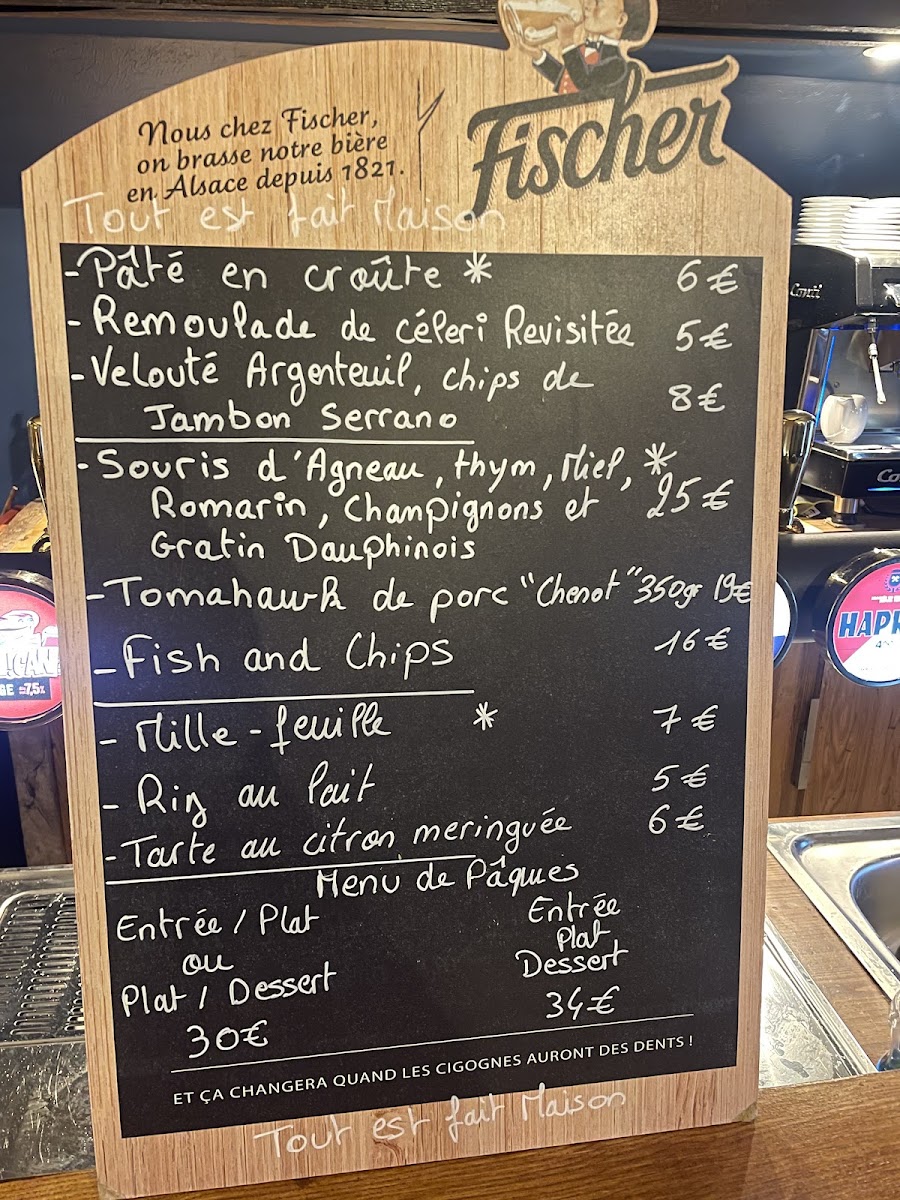 Nous chez Fischer,
on brasse notre bière
en Alsace depuis 1821.
Fischer
Tout est fait Maison
- Pâté en croûte * 6€
- Remoulade de céleri Revisitée 5€
- Velouté Argenteuil, chips de
Jambon Serrano 8€
- Souris d'Agneau, thym, Miel, *
Romarin, Champignons et 25€
Gratin Dauphinois
- Tomahawk de porc "Chenot" 350gr 19€
- Fish and Chips 16€
- Mille-feuille * 7€
- Riz au lait 5€
- Tarte au citron meringuée 6€
Menu de Pâques
Entrée / Plat
ou
Plat / Dessert
30€
Entrée
Plat
Dessert
34€
ET ÇA CHANGERA QUAND LES CIGOGNES AURONT DES DENTS !
Tout est fait Maison
Conti